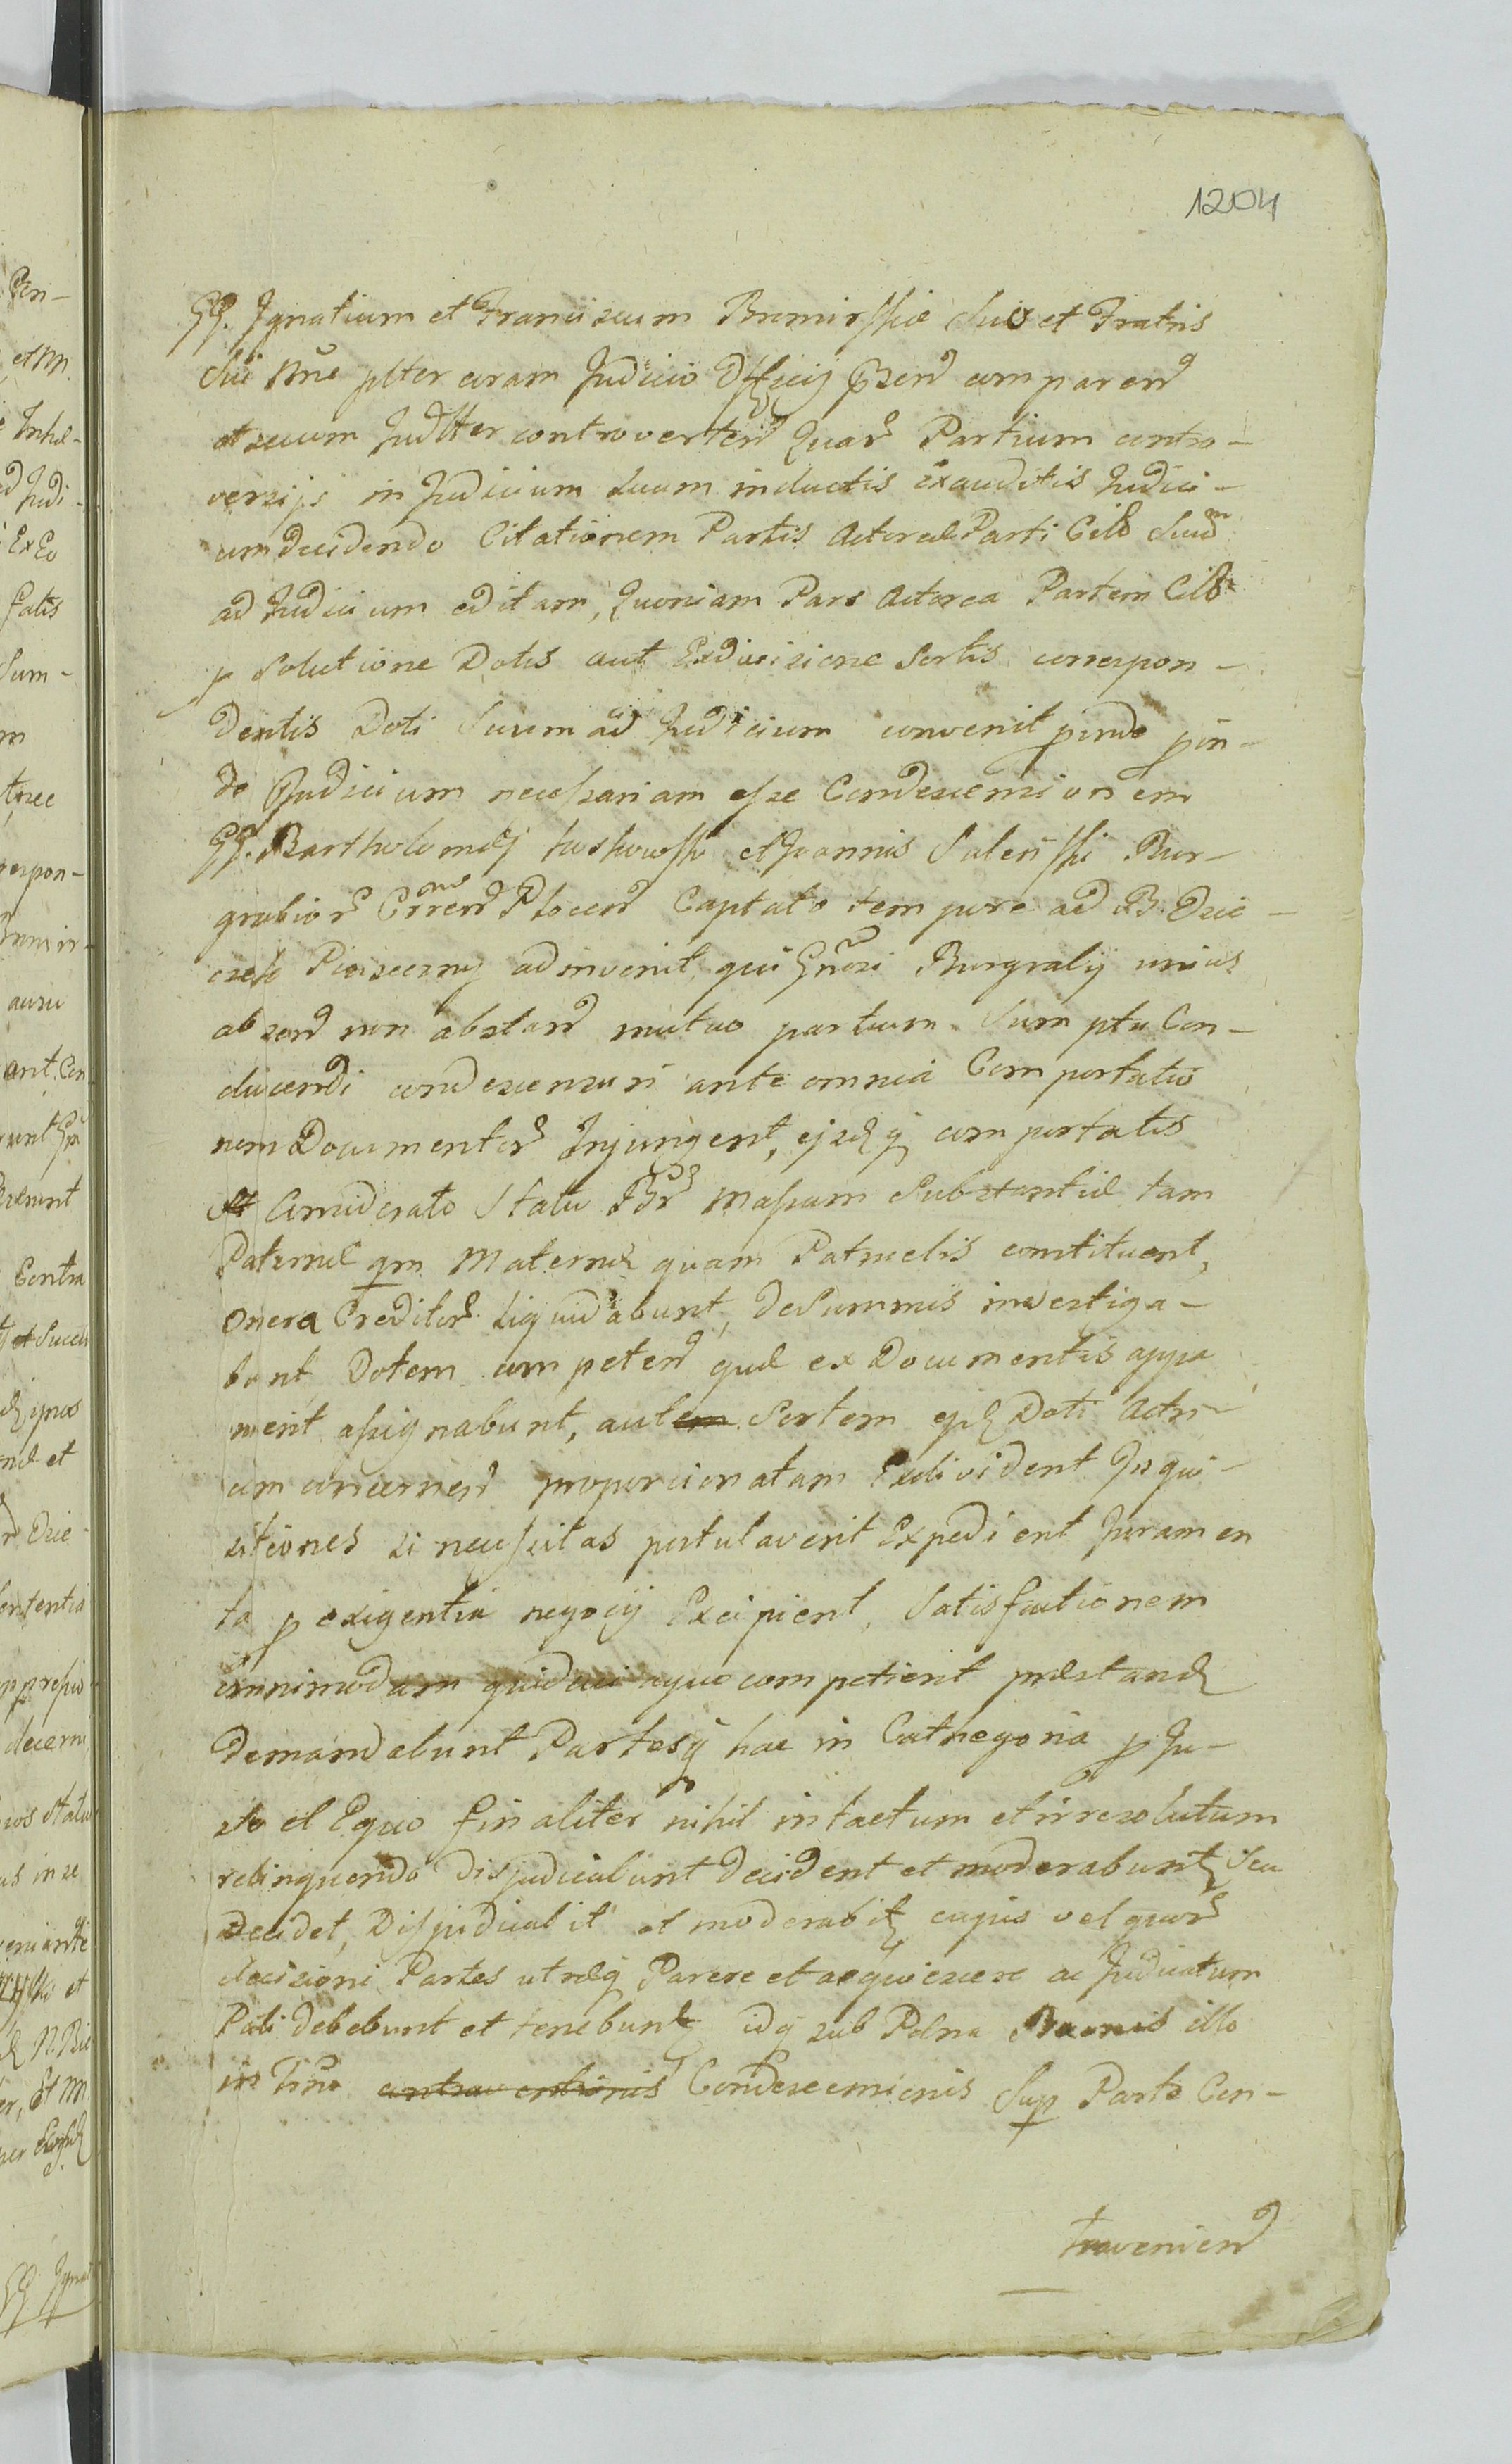 1204
GG. Ignatium et Franciscum Bromirskie suo et Fratris
sui nne plter coram Judicio Officij Pzend comparend
et secum Judltter controvertend Quar Partium contro-
versijs in Judicium suum inductis exauditis Judici-
um decidendo Citationem Partis Actoreae Parti Citt Suum
ad Judicium editam, Quoniam Pars Actorea Partem Citt
p solutione Dotis aut Exdivisione Sortis correspon-
dentis Doti Suum ad Judicium convenit proinde proin-
de Judicium necessariam esse Condescensionem
GG. Bartholomaej et Joannis Bur-
grabior Crren Plocen Captato tempore ad B. Dzie-
Piaseczny adinvenit, qui Gnrosi Burgrabij unius
absend non obstand mutuo partium Sumptu Con-
ducendi condescensuri ante omnia Comportatio
nem Documentor Injungent, ejsdq comportatis
et Considerato Statu Bnr Massam Substantiae tam
Paternae qm Maternae quam Patruelis constituent,
onera Creditor liquidabunt, de Summis investiga-
bunt Dotem competend quae ex Documentis appa
ruerit assignabunt, autem Sortem ejsd Doti Actri-
cem concernend proporcionatam Exdivident Inqui-
sitiones si necessitas postulaverit Expedient Juramen
ta p exigentia negocij Excipient, Satisfactionem
omnimodam quid cui aquo competierit praestand
demandabunt Partesq hac in Cathegoria p Ju-
sto et Equo finaliter nihil intactum et irresolutum
relinquendo disjudicabunt decident et moderabunt seu
decidet, Disjudicabit et moderabit, cujus vel quor
decisioni Partes utraeq Parere et acquiescere ac Judicatum
Pati debebunt et tenebunt idq sub Poena Bannis illo
in Fno contraventionis Condescensionis Sup Parte Con-
travenien